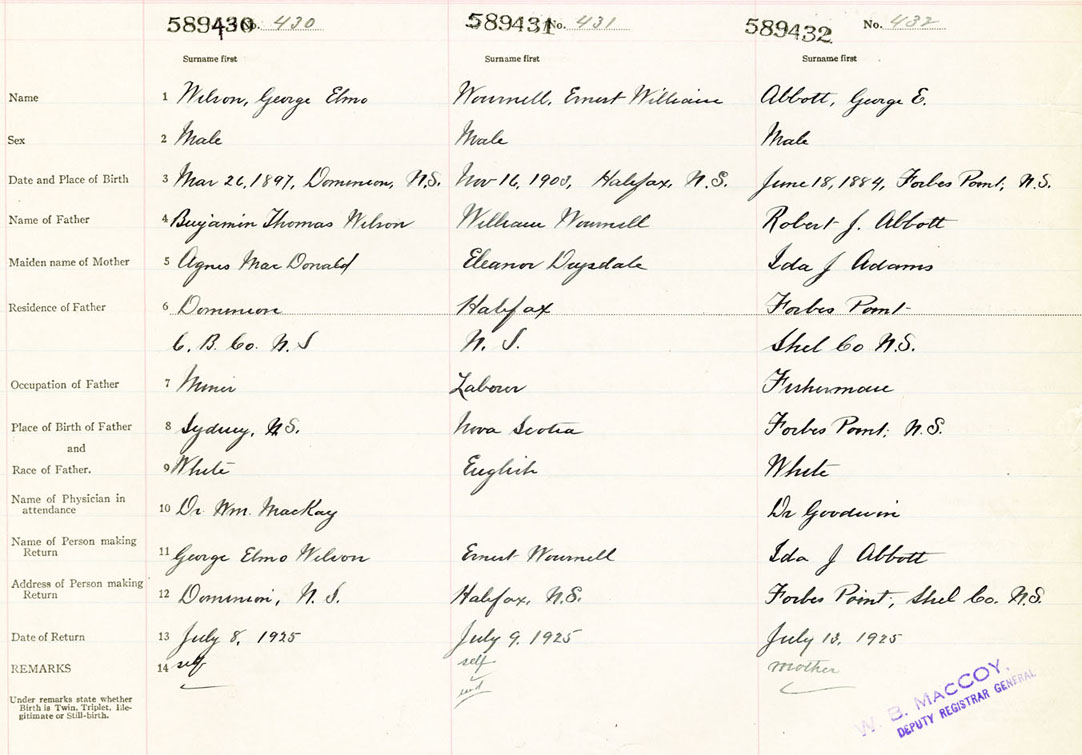 589430 No. 430 589431 No. 431 589432 No. 432
Surname first Surname first Surname first
Name 1 Wilson, George Elmo Wournell, Ernest William Abbott, George E.
Sex 2 Male Male Male
Date and Place of Birth 3 Mar 26, 1897, Dominion, N.S. Nov 16, Halifax, N.S. June 18, 1884, Forbes Point, N.S.
Name of Father 4 Benjamin Thomas Wilson William Wournell Robert J. Abbott
Maiden name of Mother 5 Agnes MacDonald Eleanor Drysdale Ida J Adams
Residence of Father 6 Dominion Halifax Forbes Point
C. B. Co. N.S N.S. Shel Co N.S.
Occupation of Father 7 Miner Laborer Fisherman
Place of Birth of Father 8 Sydney, N.S. Nova Scotia Forbes Point, N.S.
and
Race of Father. 9 White English White
Name of Physician in
attendance 10 Dr. Wm. MacKay Dr Goodwin
Name of Person making
Return 11 George Elmo Wilson Ernest Wournell Ida J Abbott
Address of Person making
Return 12 Dominion, N.S. Halifax, N.S. Forbes Point, Shel Co. N.S.
Date of Return 13 July 8, 1925 July 9, 1925 July 13, 1925
REMARKS 14 self self mother
Under remarks state whether
Birth is Twin, Triplet, Ille-
gitimate or Still-birth.
W. B. MACCOY,
DEPUTY REGISTRAR GENERAL